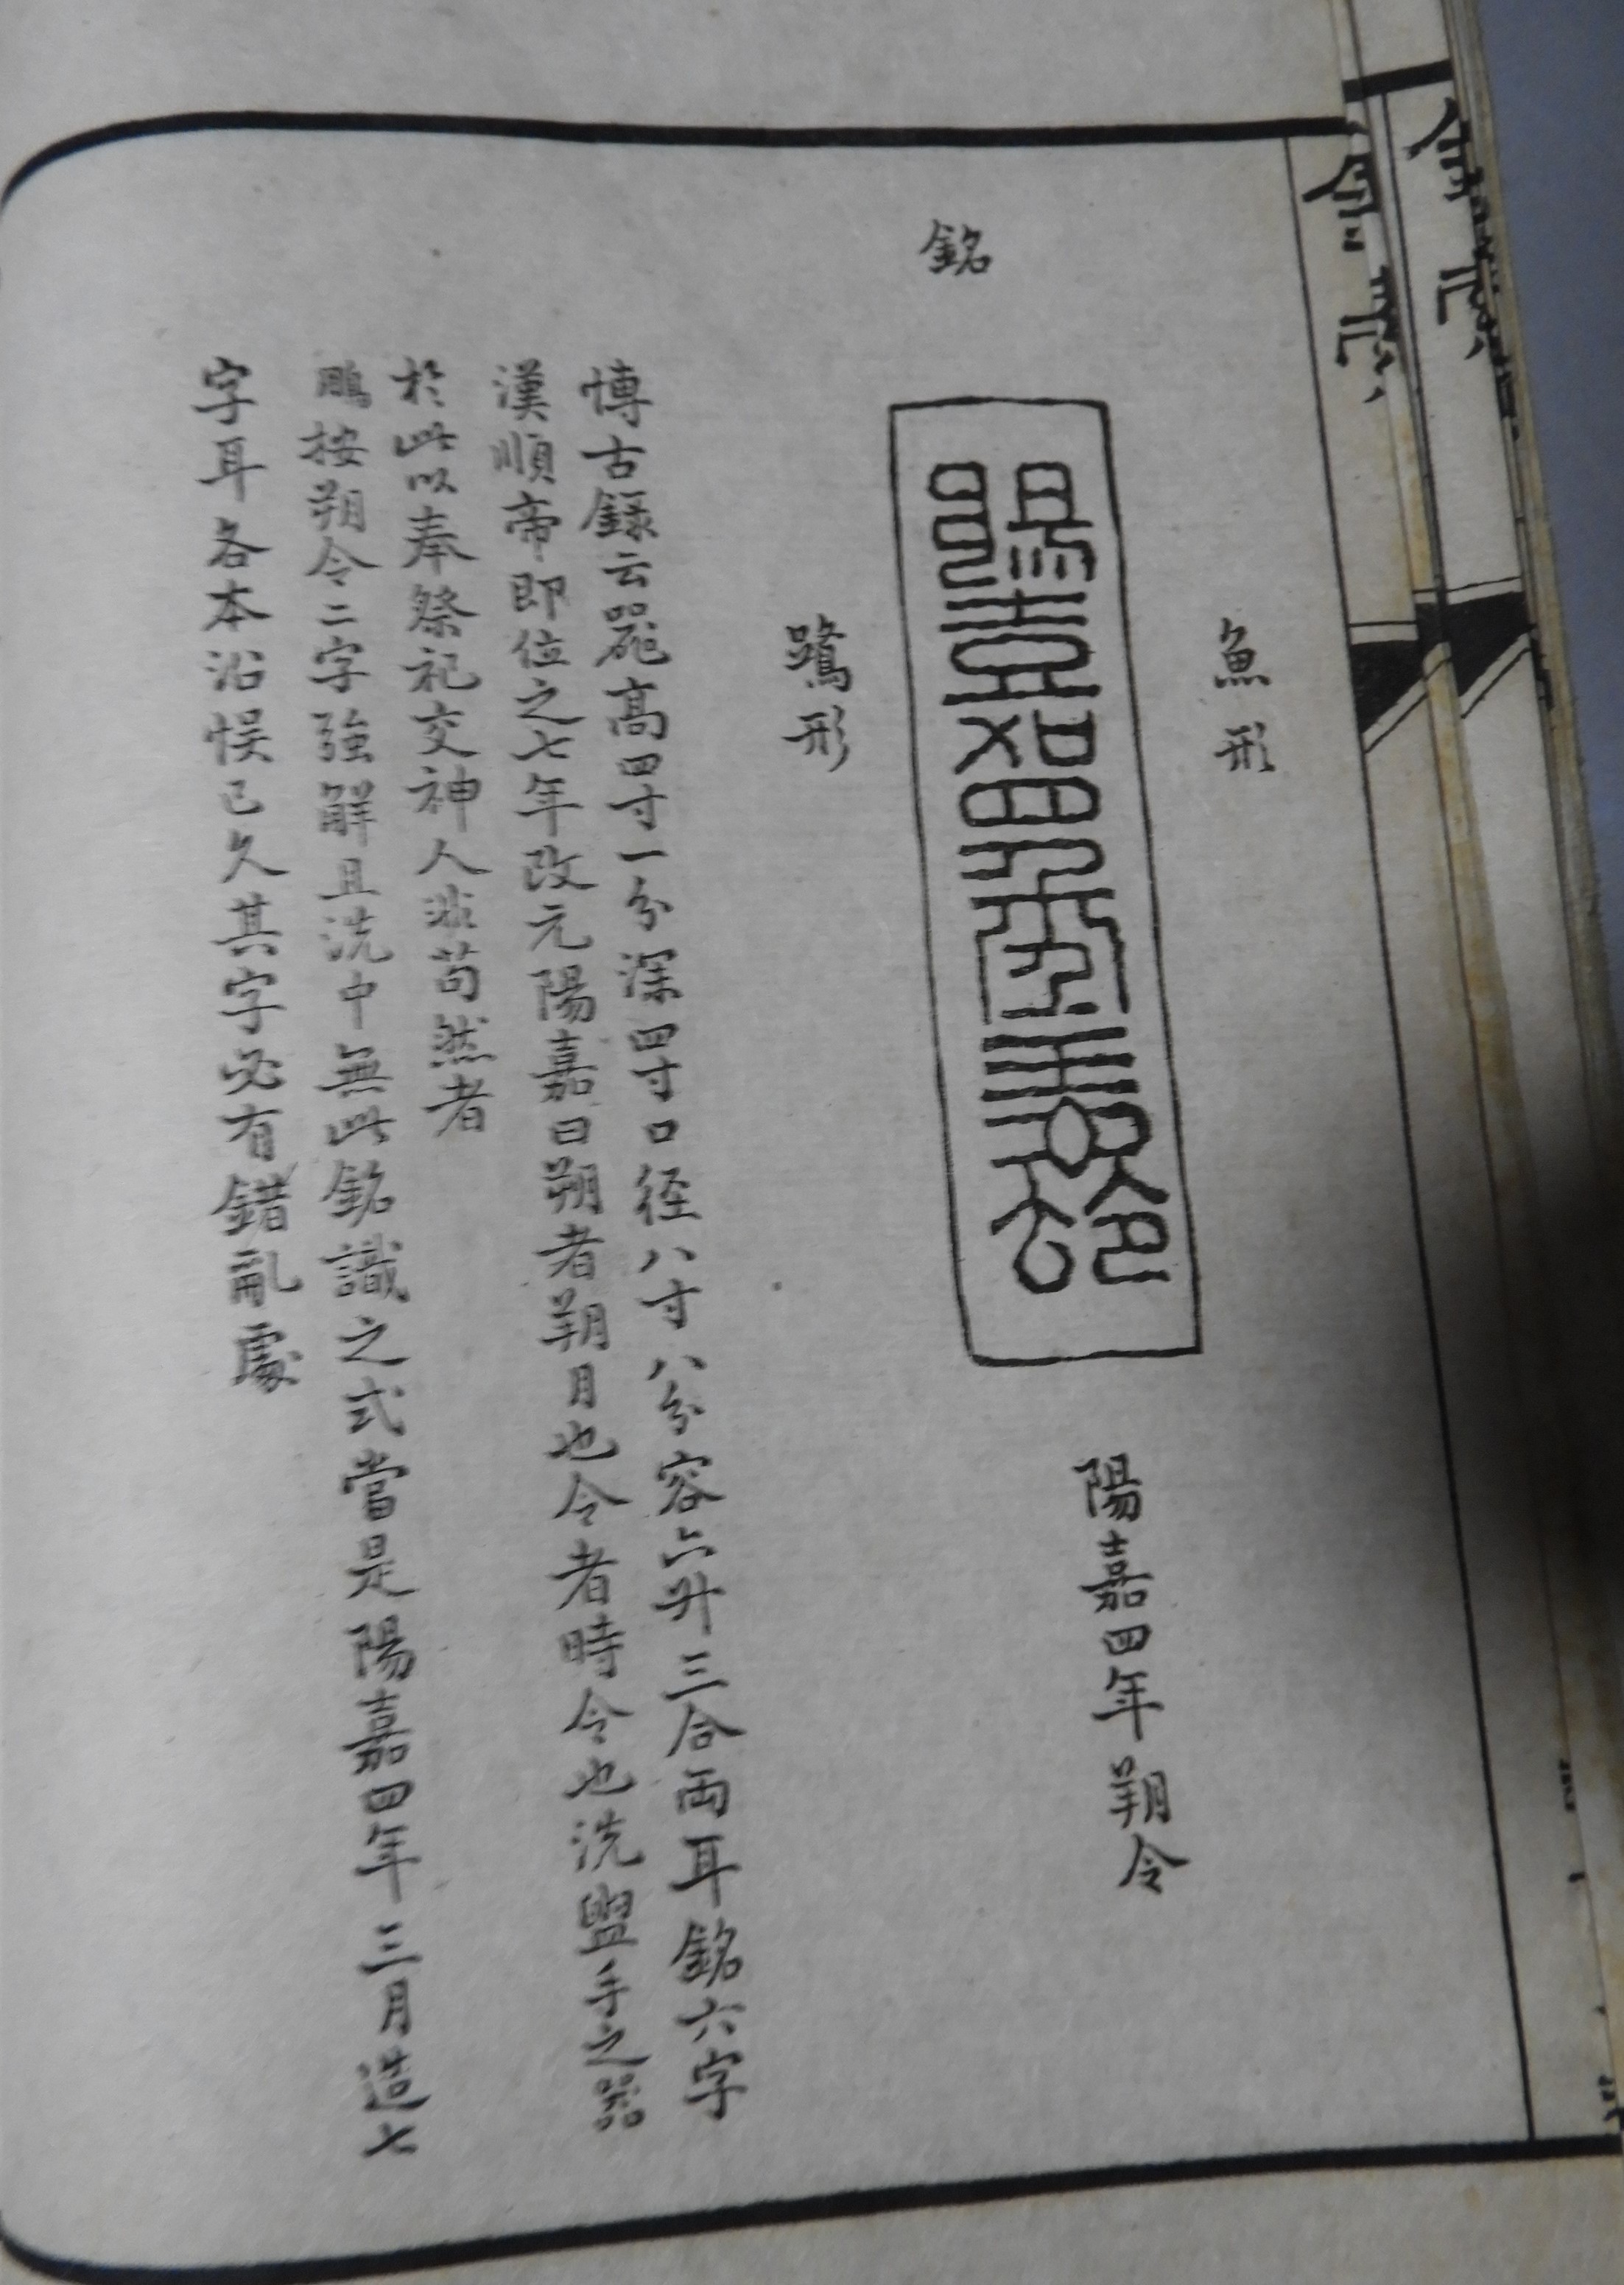 魚形
陽嘉四年朔令
銘
鷺形
博古録云器高四寸一分深四寸口径八寸八分容六升三合両耳銘六字
漢順帝即位之七年改元陽嘉曰朔者朔月也令者時令也洗盥手之器
於此以奉祭祀交神人非苟然者
鵬按朔令二字強解且洗中無此銘識之式當是陽嘉四年三月造七
字耳各本沿悞已久其字必有錯亂處